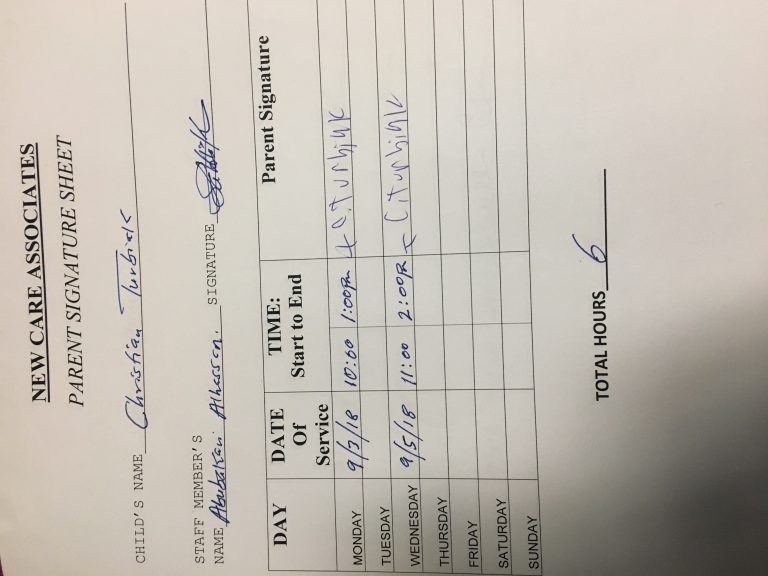 NEW CARE ASSOCIATES
PARENT SIGNATURE SHEET
CHILD'S NAME Christian Turbiak
STAFF MEMBER'S
NAME Abubakari Alhassan. SIGNATURE
DAY DATE Of Service TIME: Start to End Parent Signature
MONDAY 9/3/18 10:00 1:00pm x C.Turbiak
TUESDAY
WEDNESDAY 9/5/18 11:00 2:00PM x C.Turbiak
THURSDAY
FRIDAY
SATURDAY
SUNDAY
TOTAL HOURS 6